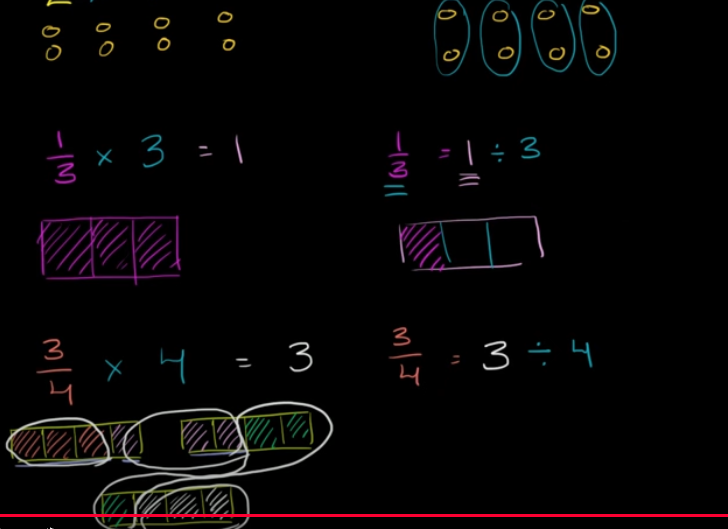 1/3 × 3 = 1
1/3 = 1 ÷ 3
3/4 × 4 = 3
3/4 = 3 ÷ 4